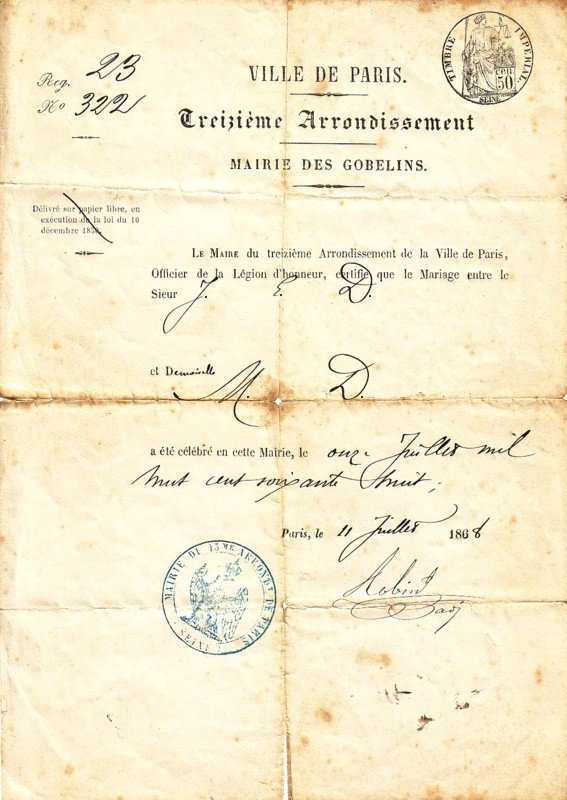 Reg. 23
No 322
VILLE DE PARIS.
TIMBRE IMPERIAL.
50 CEN
SEINE
Treizième Arrondissement
MAIRIE DES GOBELINS.
Délivré sur papier libre, en
exécution de la loi du 10
décembre 1850.
LE MAIRE du treizième Arrondissement de la Ville de Paris,
Officier de la Légion d'honneur, certifie que le Mariage entre le
Sieur J. E. D.
et Demoiselle M. D.
a été célébré en cette Mairie, le onze Juillet mil
huit cent soixante huit;
Paris, le 11 Juillet 1868
MAIRIE DU 13ME ARRONDT DE PARIS
SEINE